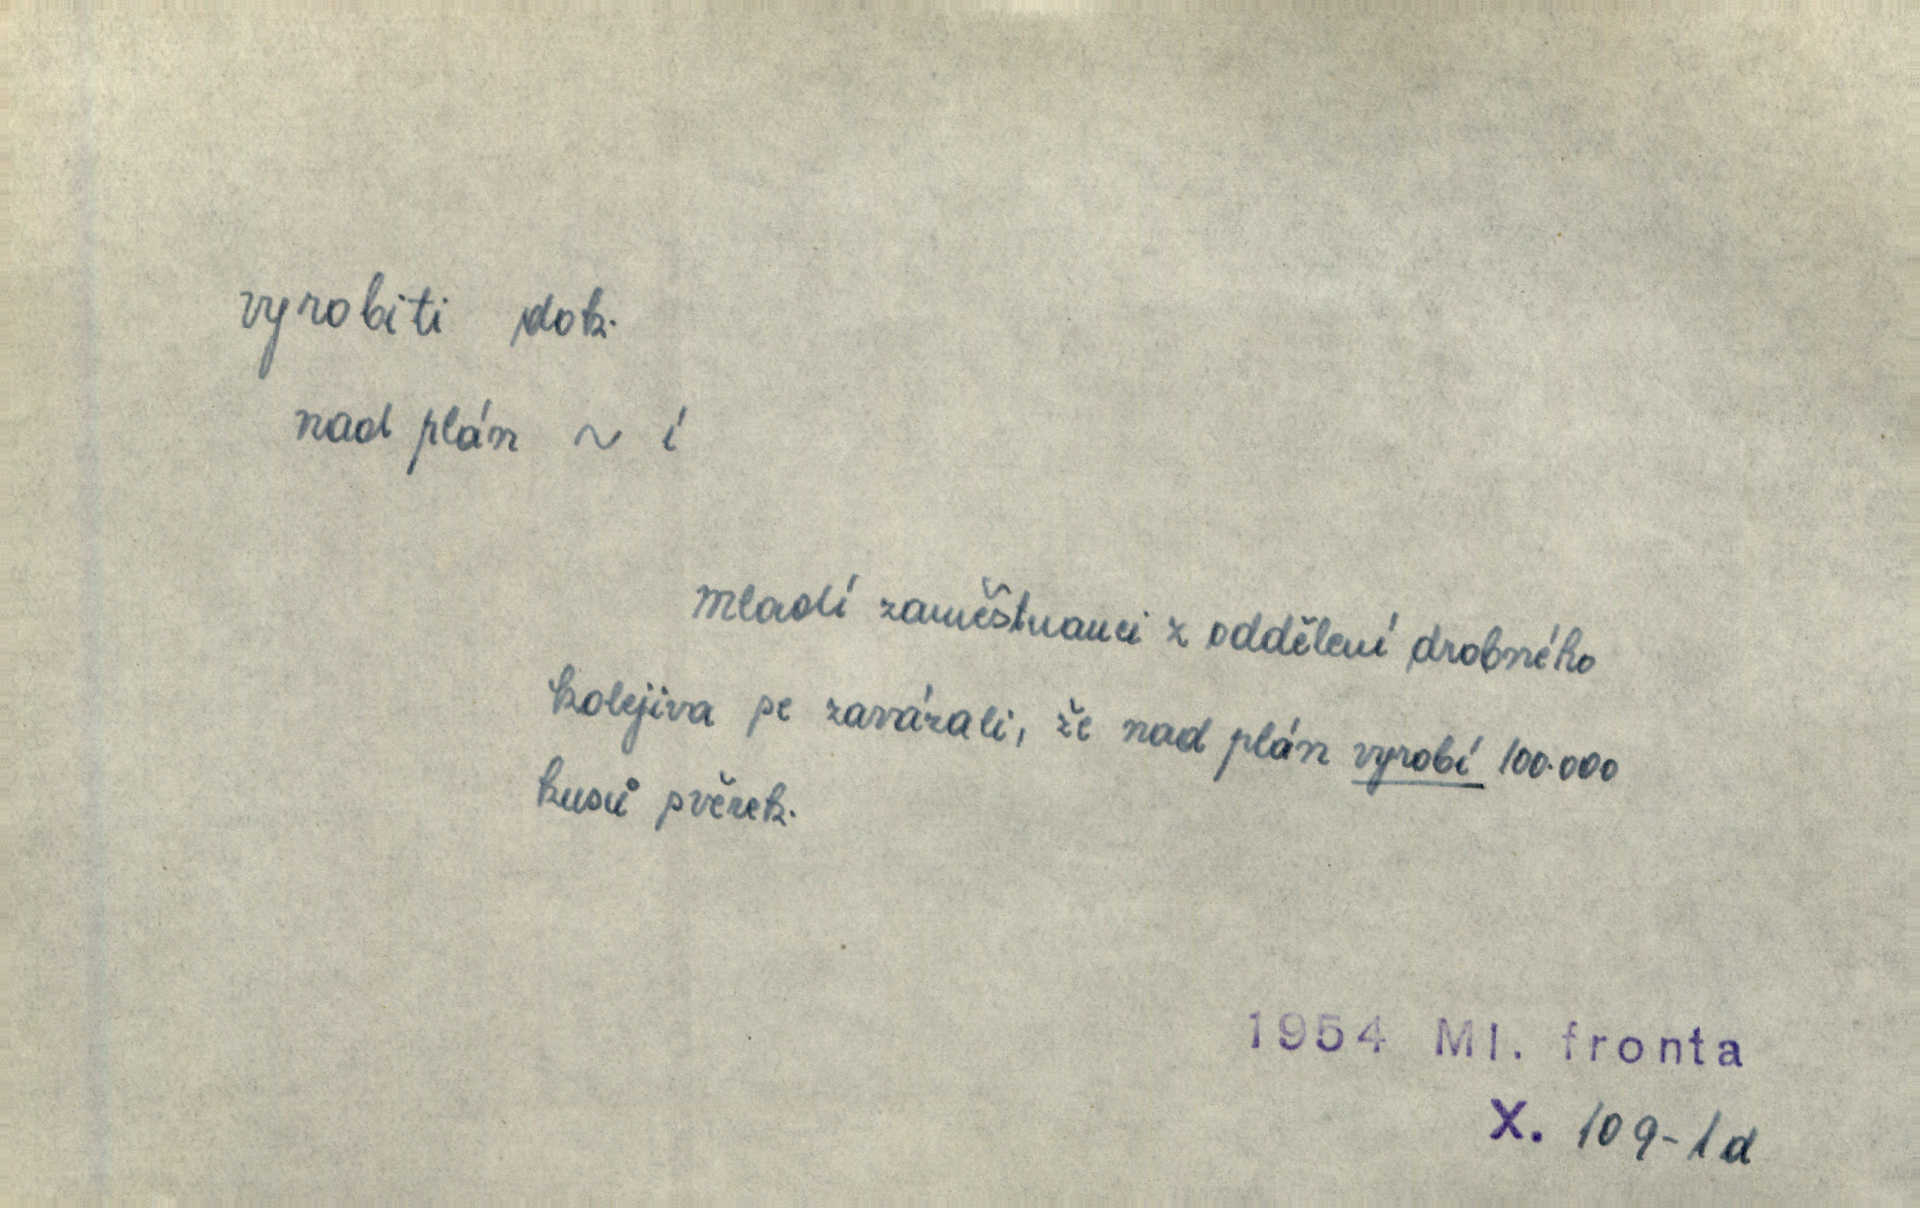 vyrobiti dok.
nad plán ~ í
Mladí zaměstnanci z oddělení drobného
kolejiva se zavázali, že nad plán vyrobí 100.000
kusů svěrek.
1954 Ml. fronta
X. 109-1d